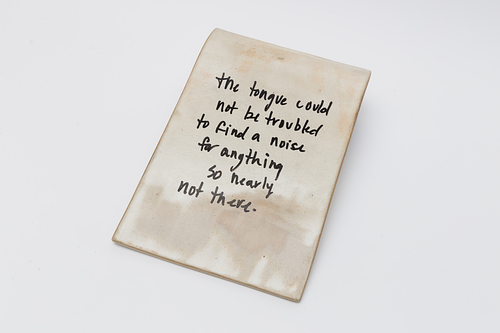 the tongue could
not be troubled
to find a noise
for angthing
so nearly
not there.